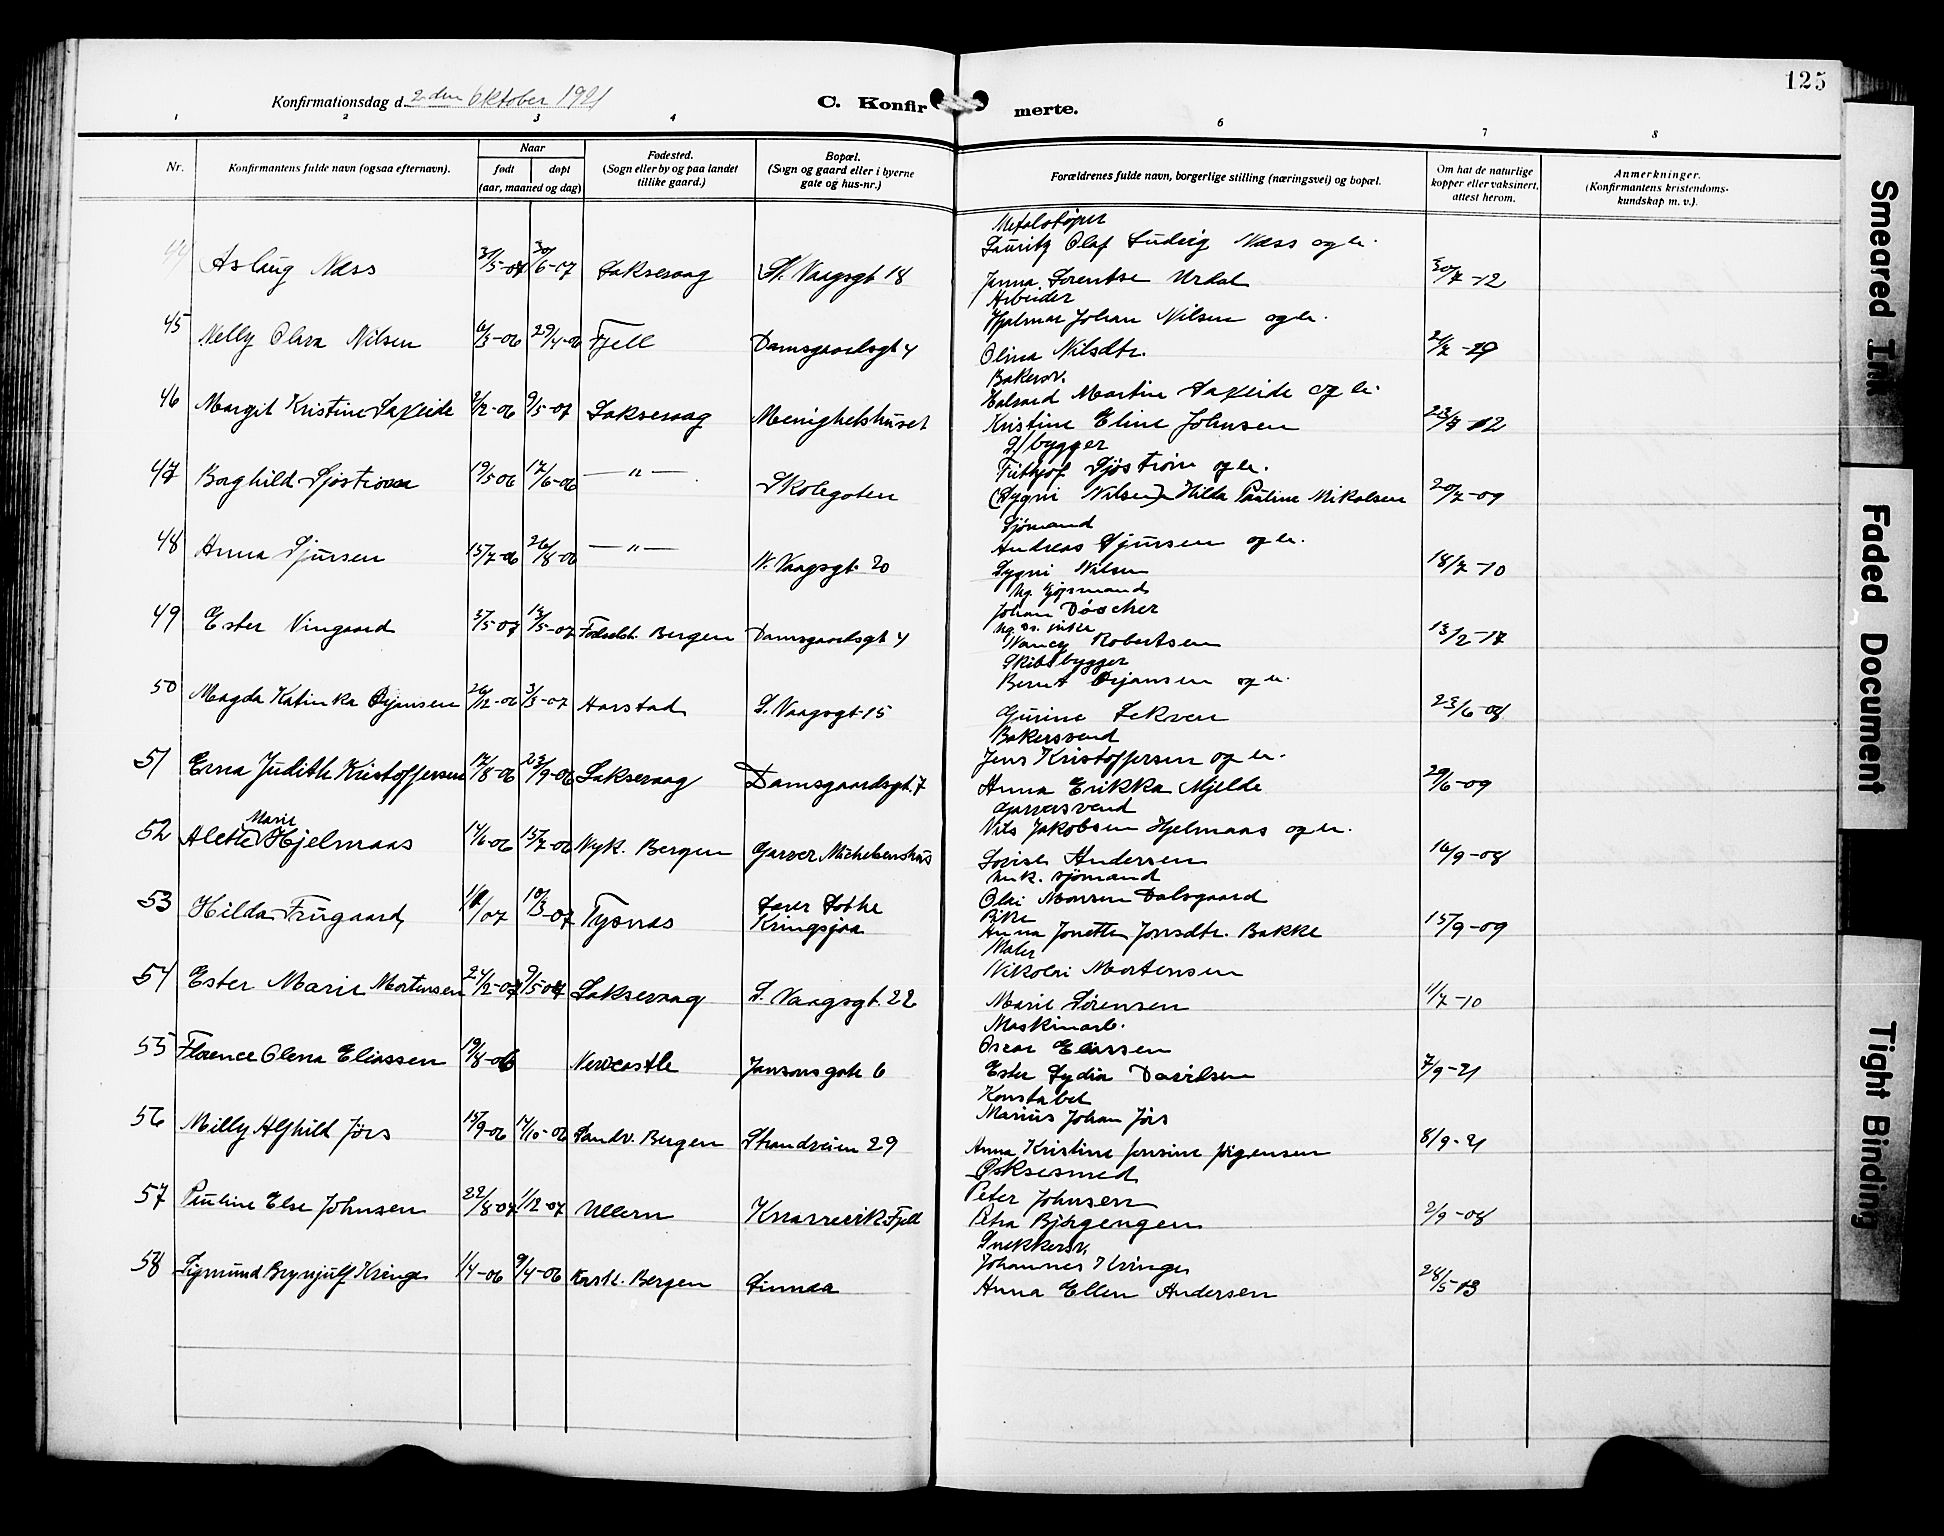 125
Konfirmationsdag d. 2den Oktober 1921
C. Konfirmerte.
1 2 3 4 6 7 8
Nr.
Konfirmantens fulde navn (ogsaa efternavn).
Naar
født døpt
(aar, maaned og dag)
Fødested.
(Sogn eller by og paa landet
tillike gaard.)
Bopæl.
(Sogn og gaard eller i byerne
gate og hus-nr.)
Forældrenes fulde navn, borgerlige stilling (næringsvei) og bopæl.
Om hat de naturlige
kopper eller vaksinert,
attest herom.
Anmerkninger.
(Konfirmantens kristendoms-
kundskap m. v.).
Metalstøper
Lauritz Olaf Ludvig Næss og h.
44 Aslaug Næss 31/5-07 30/6-07 Laksevaag St. Vaagsgt 18
Janna Lorentse Urdal 30/7-12
Arbeider
Hjalmar Johan Nilsen og h.
45 Nelly Olava Nilsen 6/3-06 29/4-06 Fjell Damsgaardsgt 4
Olina Nilsdtr. 2/7-29
Bakersv.
Halvard Martin Saxeide og h.
46 Margit Kristine Saxeide 9/12-06 9/5-07 Laksevaag Menighetshuset
Kristine Eline Johnsen 23/7-12
S/bygger
Fritjof Sjøstrøm og h.
47 Borghild Sjøstrøm 19/5 06 17/6-06 — " — Skolegaten
(Sygni Nilsen) Hilda Pauline Mikalsen 20/7-09
Sjömand
Andreas Sjursen og h.
48 Anna Sjursen 15/7-06 26/8-06 — " — N. Vaagsgt. 20
Sygni Nilsen 18/7-10
Ug. Sjömand
Johan Döscher
49 Ester Vingaard 3/5-07 12/5-07 Fødselst. Bergen Damsgaardsgt 4
Ug. pike
Nancy Robertsen 13/2-17
Skibsbygger
Bernt Ørjansen og h.
50 Magda Katinka Ørjansen 26/12-06 3/3-07 Harstad S. Vaagsgt 15
Gurine Lekven 23/6-08
Bakersvend
Jens Kristoffersen og h.
51 Erna Judith Kristoffersen 17/8-06 23/9-06 Laksevaag Damsgaardsgt. 7
Anna Erikka Mjelde 29/6-09
Garversvend
Nils Jakobsen Hjelmaas og h.
52 Alette Marie Hjelmaas 14/6-06 15/7-06 Nyk. Bergen Garver Michelsens hus
Lovise Andersen 16/9-08
Unk. sjömand
Olai Monsen Dalsgaard
53 Hilda Frugaard 1/1/07 10/3-07 Tysnes Lærer Lothe Kringsjaa
Pike
Anna Jonette Jonsdtr. Bakke 15/9-09
Maler
Nikolai Mortensen
54 Ester Marie Mortensen 24/2-07 9/5 07 Laksevaag S. Vaagsgt. 22
Marie Sørensen 11/7-10
Maskinarb.
Oscar Eliassen
55 Florence Olena Eliassen 19/8-06 Newcastle Jansonsgate 6
Ester Lydia Davidsen 7/9-21
Konstabel
Marius Johan Jörs
56 Milly Alfhild Jörs 15/9-06 14/10-06 Sandv. Bergen Strandveien 29
Anna Kristine Jensine Jörgensen 8/9-21
Øksesmed
Peter Johnsen
57 Pauline Else Johnsen 22/8-07 1/12-07 Ullern Knarrevik Fjell
Petra Björgengen 2/9-08
Snekkersv.
Johannes Kringe
58 Sigmund Brynjulf Kringe 1/4-06 9/4-06 Korsk. Bergen Linnea
Anna Ellen Andersen 28/5-13
Smeared Ink
Faded Document
Tight Binding